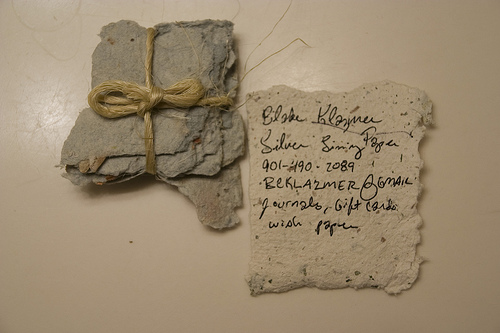 Blake Klazmer
Silver Lining Paper
901-490-2089
BCKLAZMER@GMAIL
Journals, Gift Cards
wish paper